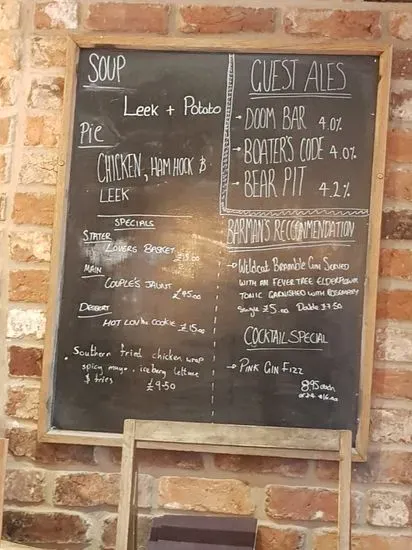 SOUP
Leek + Potato
Pie
CHICKEN, HAM HOCK &
LEEK
SPECIALS
STATER
LOVERS BASKET £15.00
MAIN
COUPLE'S JAUNT
£45.00
DESSERT
HOT LOVIN COOKIE £15.00
• Southern fried chicken wrap
spicy mayo, iceberg lettuce
& fries
£9.50
GUEST ALES
→ DOOM BAR 4.0%
→ BOATER'S CODE 4.0%
→ BEAR PIT 4.2%
BARMAN'S RECOMMENDATION
→ Wildcat Bramble Gin Served
WITH AN FEVER TREE ELDERFLOWER
TONIC GARNISHED WITH ROSEMARY
Single £5.00 Double £7.50
COCKTAIL SPECIAL
→ PINK GIN FIZZ
8.95 each